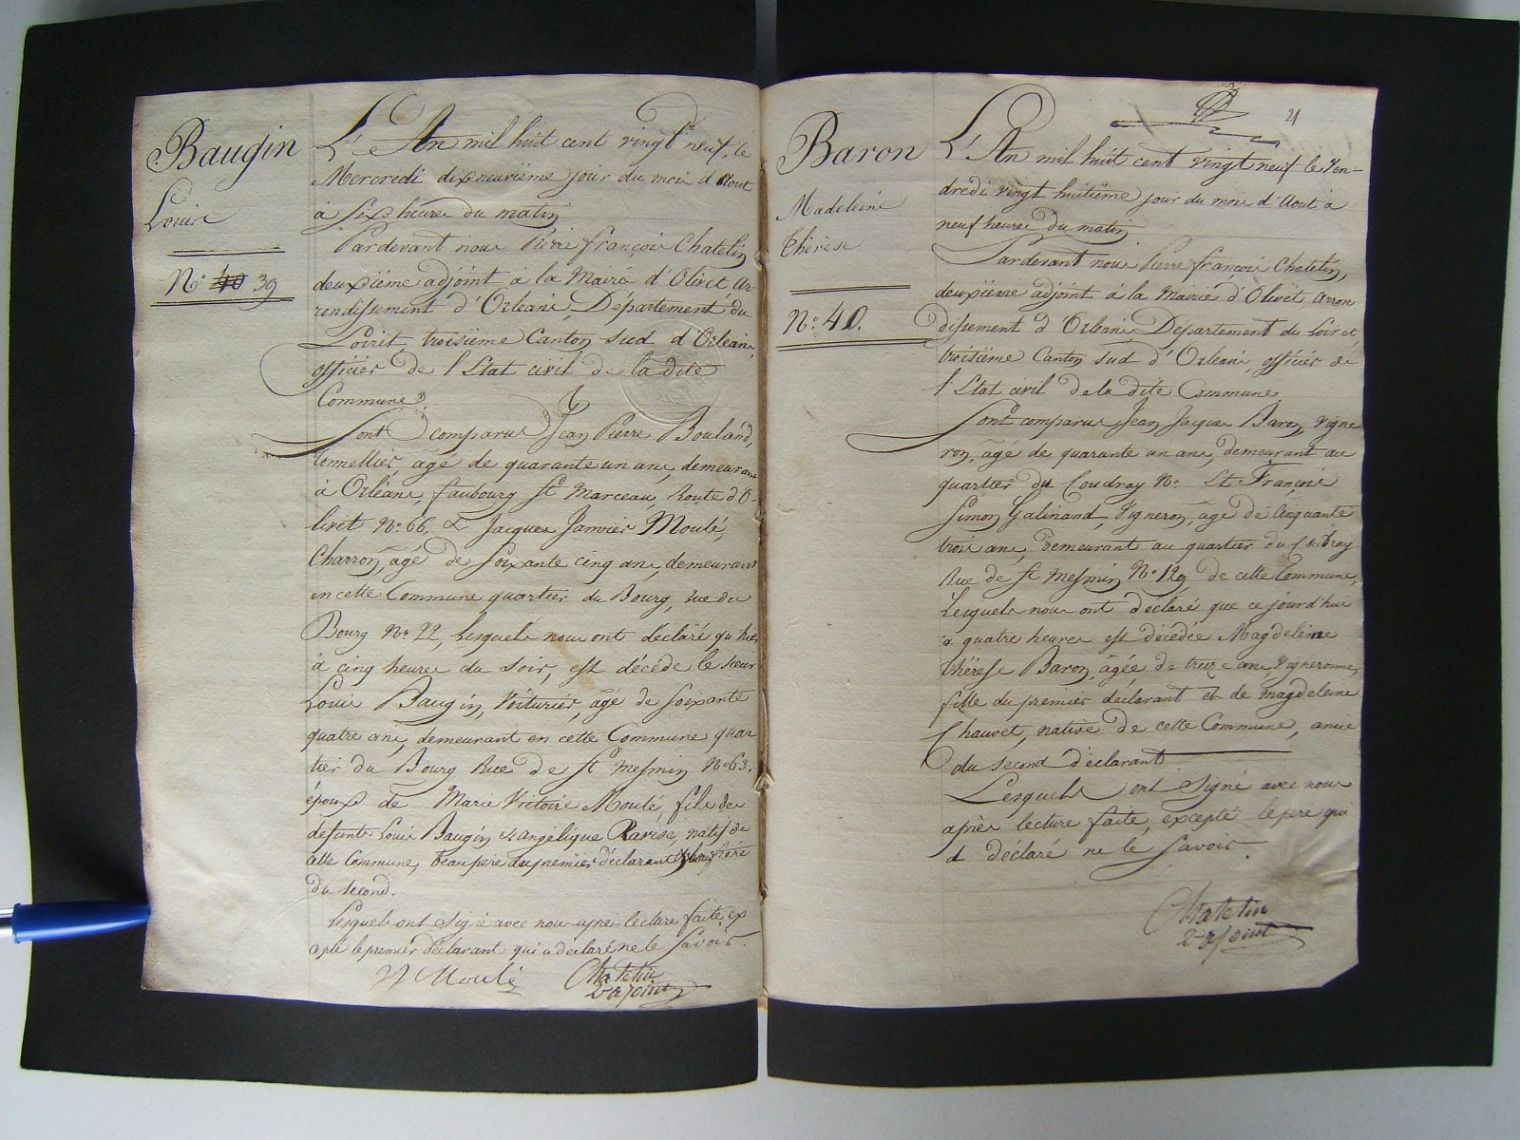 Baugin
Louis
N° 40 39
L'An mil huit cent vingt neuf, le
Mercredi dixneuvième jour du mois d'Aout
à six heures du matin
Pardevant nous Pierre françois Chatelin
deuxième adjoint à la Mairie d'Olivet, Ar-
rondissement d'Orléans, Département du
Loiret, troisième Canton sud d'Orléans,
officier de l'Etat civil de la dite
Commune.
Sont comparus Jean Pierre Bouland,
tonnellier, âgé de quarante un ans, demeurant
à Orléans, faubourg St Marceau, Route d'O-
livet N° 66, & Jacques Janvier Moulé,
Charron, âgé de soixante cinq ans, demeurant
en cette Commune quartier du Bourg, rue du
Bourg N° 22, lesquels nous ont déclaré qu'hier
à cinq heures du soir, est décédé le sieur
Louis Baugin, Voiturier, âgé de soixante
quatre ans, demeurant en cette Commune quar
tier du Bourg Rue de St Mesmin N° 63,
époux de Marie Victoire Moulé, fils de
defunts Louis Baugin & angélique Ravise, natif de
cette Commune, beaupere du premier déclarant &
du second.
Lesquels ont signé avec nous après lecture faite, ex
cepté le premier déclarant qui a déclaré ne le savoir.
JJ Moulé Chatelin
2e adjoint
21
Baron
Madeleine
thérèse
N° 40.
L'An mil huit cent vingt neuf le Ven-
dredi vingt huitième jour du mois d'Aout à
neuf heures du matin
Pardevant nous Pierre françois Chatelin,
deuxième adjoint à la Mairie d'Olivet, Arron
dissement d'Orléans Département du Loiret,
troisième Canton sud d'Orléans, officier de
l'Etat civil de la dite Commune
Sont comparus Jean Jacques Baron, vigne
ron, âgé de quarante un ans, demeurant au
quartier du Coudray N° Et François
Simon Galinand, Vigneron, âgé de cinquante
trois ans, demeurant au quartier du Coudray
Rue de St Mesmin N° 129 de cette Commune,
Lesquels nous ont déclaré que ce jourd'hui
à quatre heures est décédée Magdeleine
thérèse Baron, âgée de treize ans, Vigneronne,
fille du premier déclarant et de Magdeleine
Chauvet, native de cette Commune, amie
du second déclarant
Lesquels ont signé avec nous
après lecture faite, excepté le pere qui
a déclaré ne le savoir.
Chatelin
2e adjoint